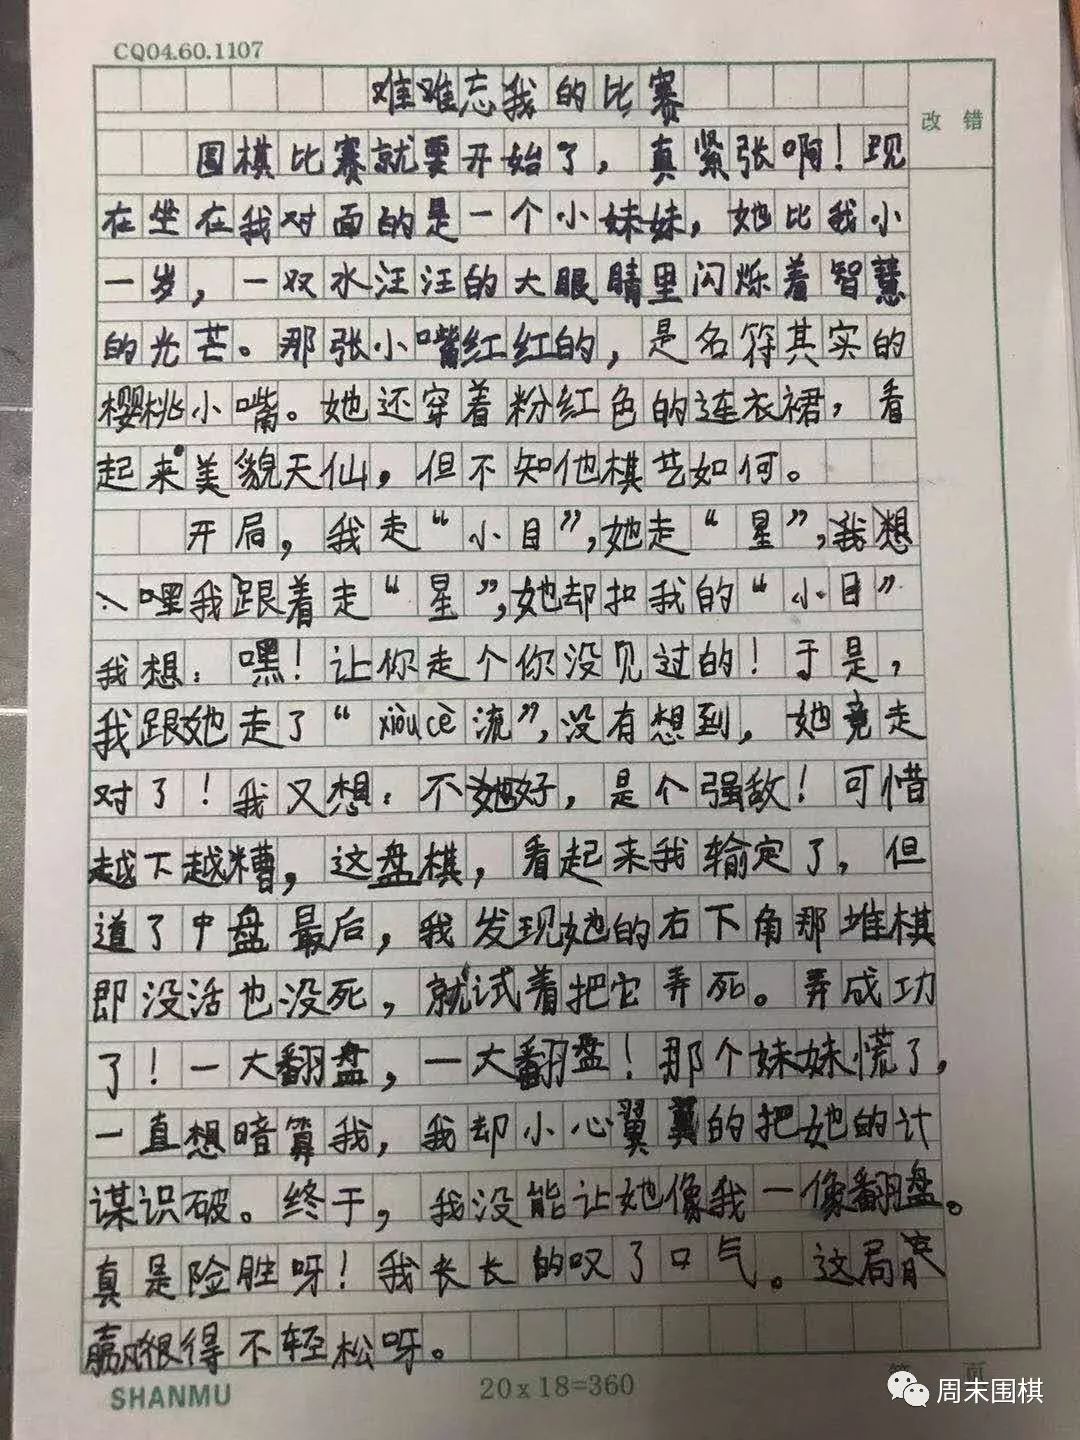 CQ04.60.1107
难难忘我的比赛
改 错
围棋比赛就要开始了，真紧张啊！现
在坐在我对面的是一个小妹妹，她比我小
一岁，一双水汪汪的大眼睛里闪烁着智慧
的光芒。那张小嘴红红的，是名符其实的
樱桃小嘴。她还穿着粉红色的连衣裙，看
起来美貌天仙，但不知他棋艺如何。
开局，我走“小目”，她走“星”，我想
、嘿我跟着走“星”，她却扣我的“小目”
我想：嘿！让你走个你没见过的！于是，
我跟她走了“xiǎucè流”，没有想到，她竟走
对了！我又想：不她好，是个强敌！可惜
越下越糟，这盘棋，看起来我输定了，但
道了中盘最后，我发现她的右下角那堆棋
即没活也没死，就试着把它弄死。弄成功
了！一大翻盘，一大翻盘！那个妹妹慌了，
一直想暗算我，我却小心翼翼的把她的计
谋识破。终于，我没能让她像我一像翻盘。
真是险胜呀！我长长的叹了口气。这局
赢狠得不轻松呀。
SHANMU
20x18=360
第 页
周末围棋